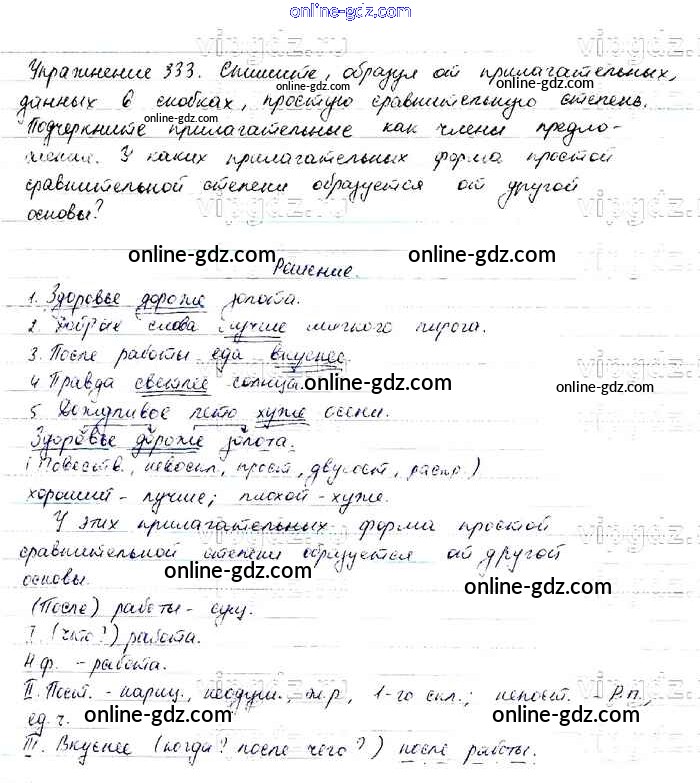 online-gdz.com
Упражнение 333. Спишите, образуя от прилагательных,
данных в скобках, простую сравнительную степень.
Подчеркните прилагательные как члены предло-
жения. У каких прилагательных форма простой
сравнительной степени образуется от другой
основы?
Решение.
1. Здоровье дороже золота.
2. Добрые слова лучше мягкого пирога.
3. После работы еда вкуснее.
4. Правда светлее солнца.
5. Дождливое лето хуже осени.
Здоровье дороже золота.
(Повеств., невоскл., прост., двусост., распр.)
хороший - лучше; плохой - хуже.
У этих прилагательных форма простой
сравнительной степени образуется от другой
основы.
(После) работы - сущ.
I. (что?) работа.
Н.ф. - работа.
II. Пост. - нариц., неодуш., ж.р., 1-го скл.; непост. - Р.п.,
ед.ч.
III. Вкуснее (когда? после чего?) после работы.